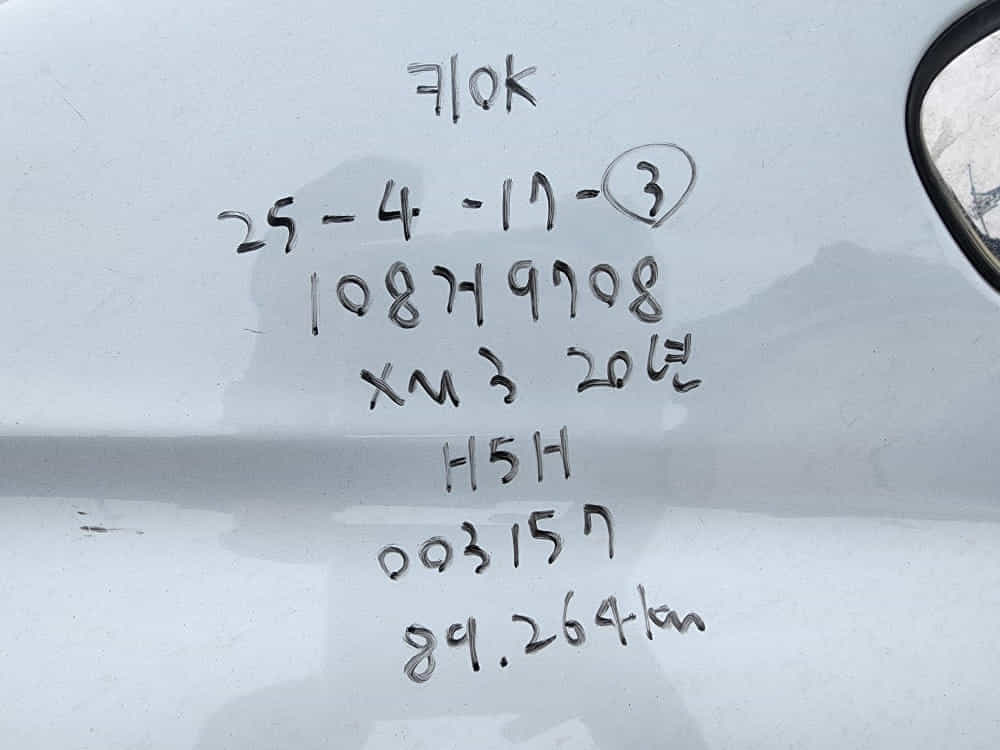 키OK
25-4-17-③
108거9708
XM3 20년
H5H
003157
89.264km